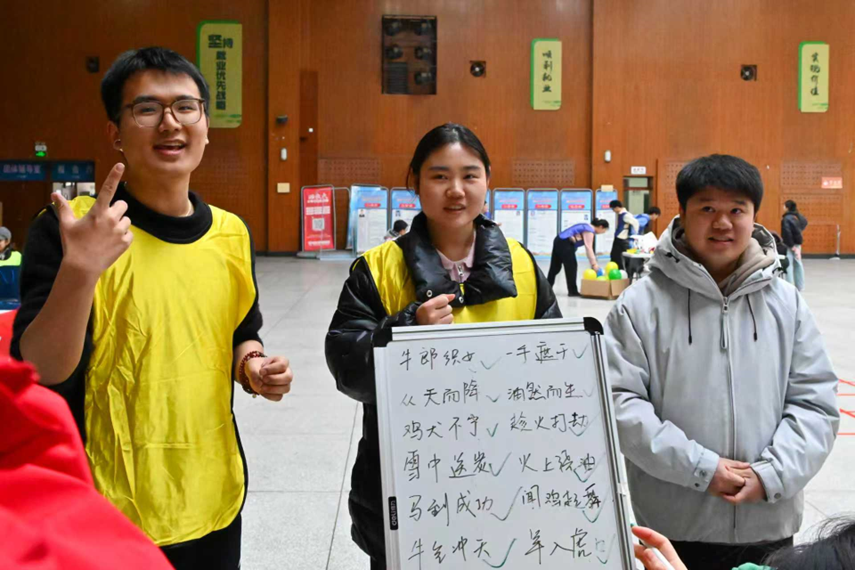 坚持
就业优先战略
顺利就业
实现价值
牛郎织女 一手遮天
从天而降 油然而生
鸡犬不宁 趁火打劫
雪中送炭 火上浇油
马到成功 闻鸡起舞
牛气冲天 羊入虎口